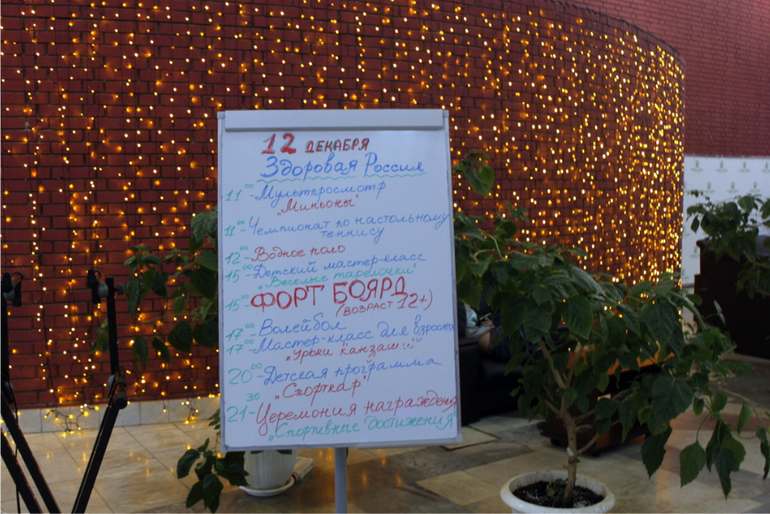 12 ДЕКАБРЯ
Здоровая Россия
11⁰⁰-Мультпросмотр
„Миньоны"
11⁰⁰-Чемпионат по настольному
теннису
12⁰⁰-Водное поло
15⁰⁰-Детский мастер-класс
„Веселые тарелочки"
15⁰⁰-ФОРТ БОЯРД
(ВОЗРАСТ 12+)
17⁰⁰-Волейбол
17⁰⁰-Мастер-класс для взрослых
„Уроки канзаши"
20⁰⁰-Детская программа
„Спорткар"
21³⁰-Церемония награждения
„Спортивные достижения"